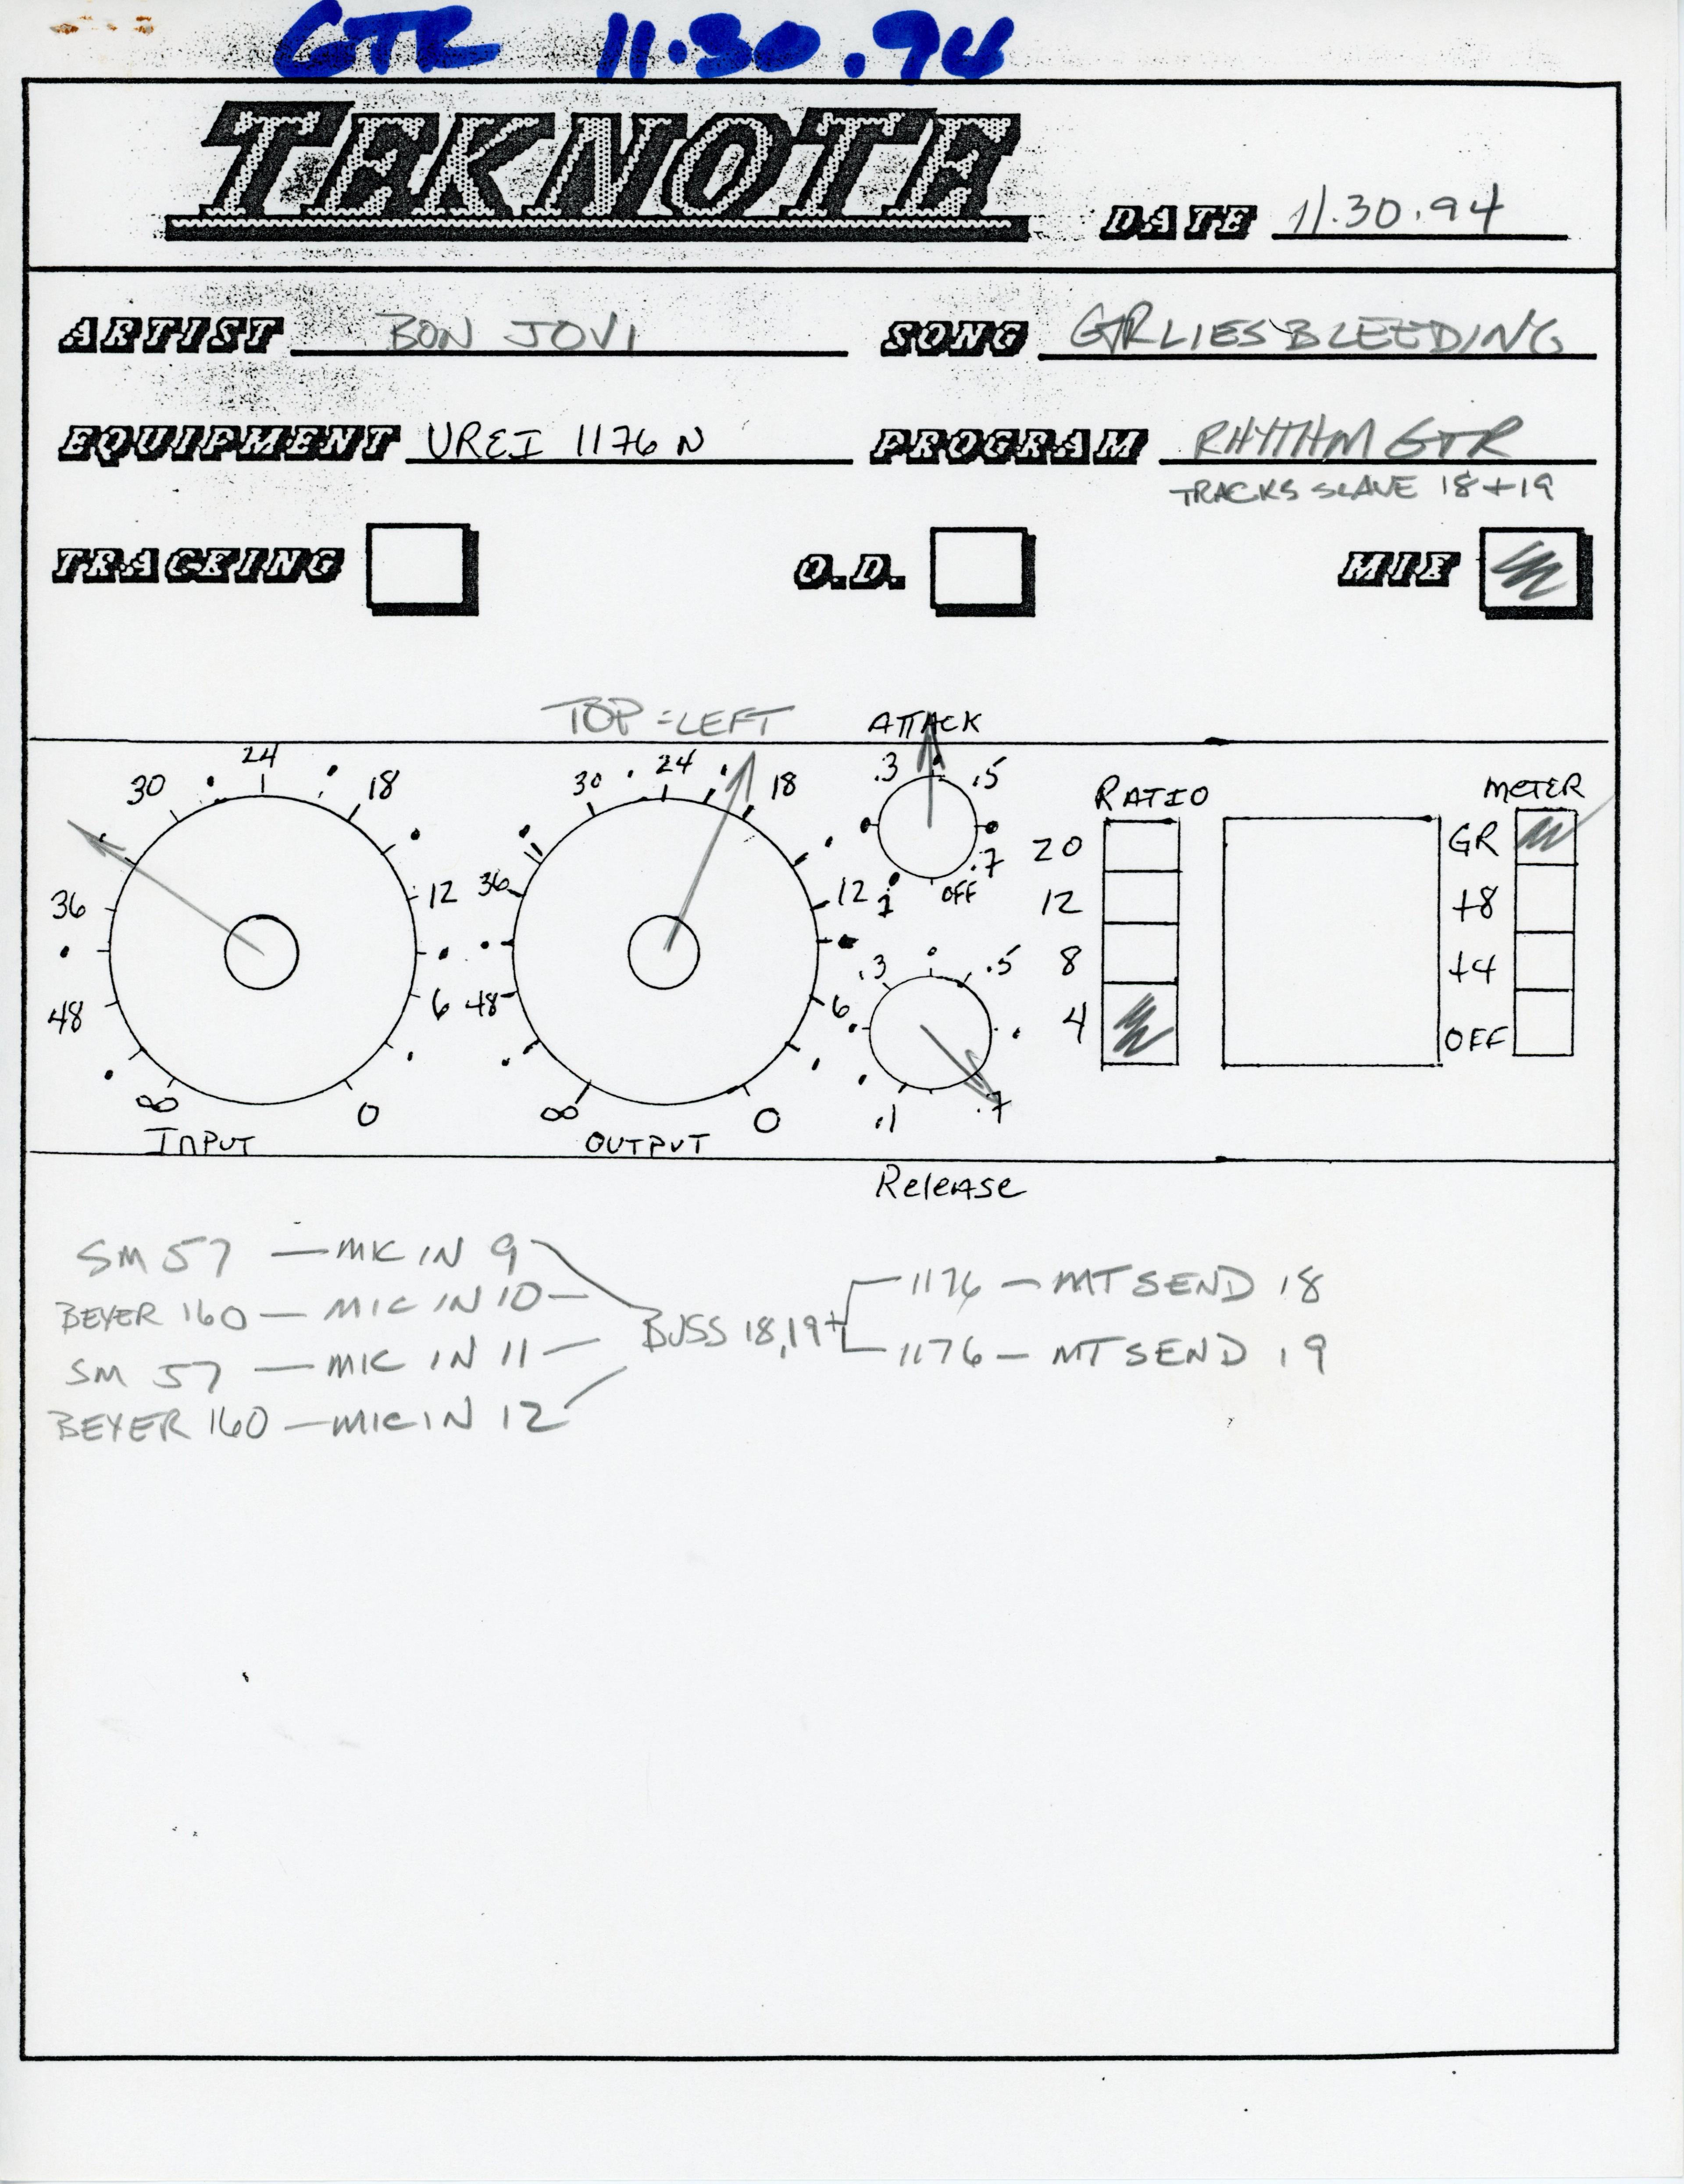 GTR 11.30.94
TEKNOTE
DATE 11.30.94
ARTIST BON JOVI
SONG GTR LIES BLEEDING
EQUIPMENT UREI 1176 N
PROGRAM RHYTHM GTR
TRACKS SLAVE 18+19
TRACKING
O.D.
MIX
TOP = LEFT
ATTACK
.3 .5
.7
OFF
1
30 24 18
36 12
48 6
∞ 0
INPUT
30 24 18
36 12
48 6
∞ 0
OUTPUT
.3 .5
.1 .7
Release
RATIO
20
12
8
4
METER
GR
+8
+4
OFF
SM 57 — MIC IN 9
BEYER 160 — MIC IN 10 —
SM 57 — MIC IN 11 —
BEYER 160 — MIC IN 12
BUSS 18,19 +
1176 — MT SEND 18
1176 — MT SEND 19